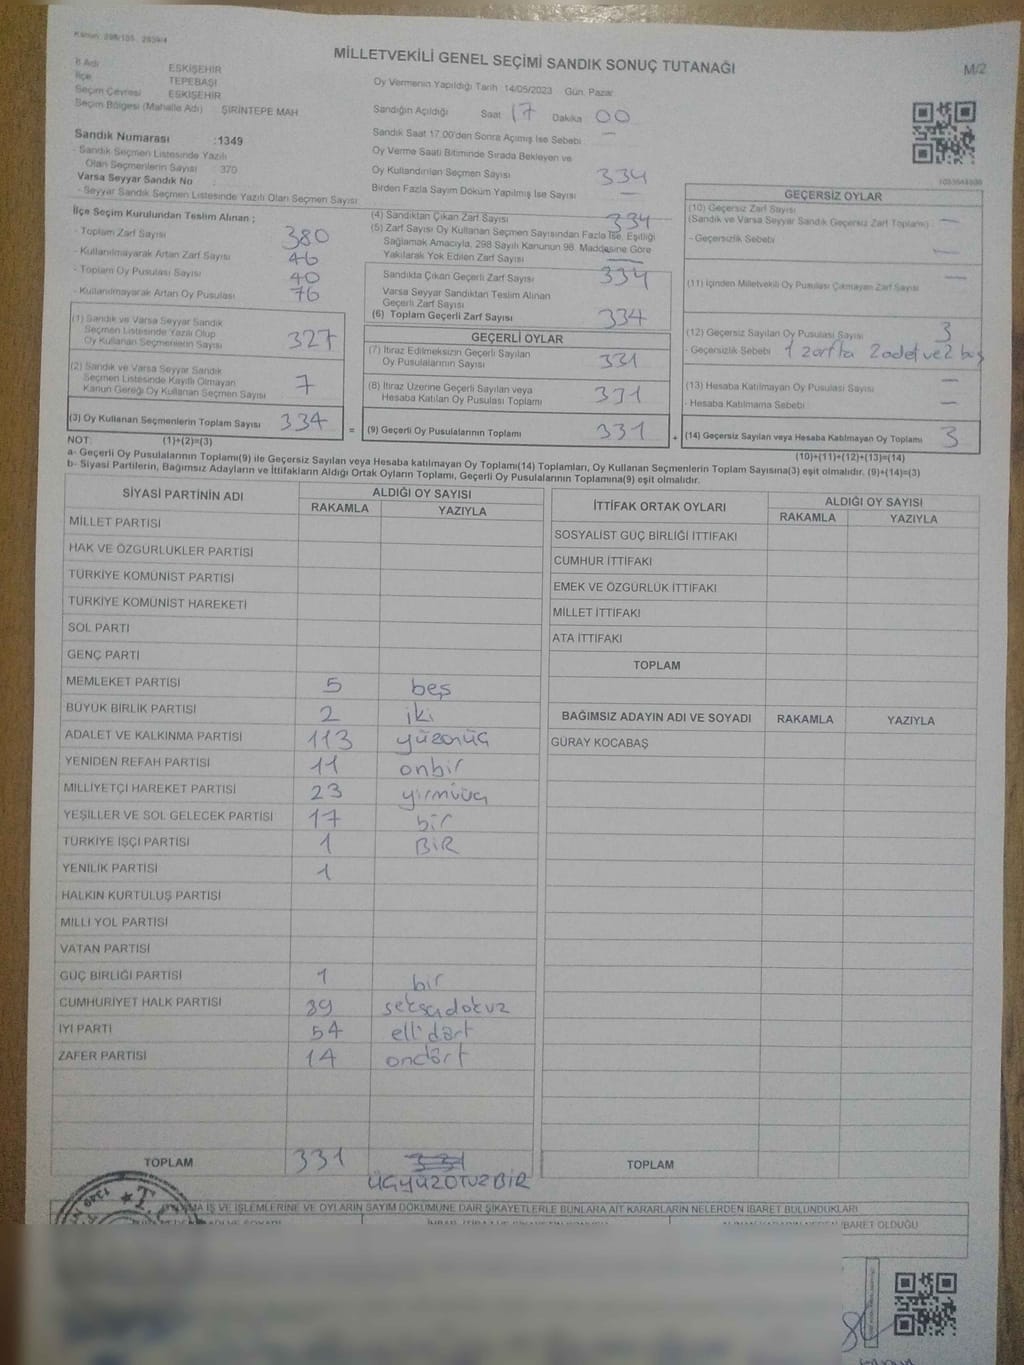 Kanun: 298/105 2839/4
MİLLETVEKİLİ GENEL SEÇİMİ SANDIK SONUÇ TUTANAĞI
M/2
İl Adı ESKİŞEHİR
İlçe TEPEBAŞI
Seçim Çevresi ESKİŞEHİR
Seçim Bölgesi (Mahalle Adı) ŞİRİNTEPE MAH
Sandık Numarası :1349
- Sandık Seçmen Listesinde Yazılı
Olan Seçmenlerin Sayısı : 370
Varsa Seyyar Sandık No
- Seyyar Sandık Seçmen Listesinde Yazılı Olan Seçmen Sayısı:
Oy Vermenin Yapıldığı Tarih 14/05/2023 Gün: Pazar
Sandığın Açıldığı Saat 17 Dakika 00
Sandık Saat 17.00'den Sonra Açılmış İse Sebebi —
Oy Verme Saati Bitiminde Sırada Bekleyen ve
Oy Kullandırılan Seçmen Sayısı 334
Birden Fazla Sayım Döküm Yapılmış İse Sayısı —
İlçe Seçim Kurulundan Teslim Alınan ;
- Toplam Zarf Sayısı 380
- Kullanılmayarak Artan Zarf Sayısı 46
- Toplam Oy Pusulası Sayısı 40
- Kullanılmayarak Artan Oy Pusulası 76
(1) Sandık ve Varsa Seyyar Sandık
Seçmen Listesinde Yazılı Olup
Oy Kullanan Seçmenlerin Sayısı 327
(2) Sandık ve Varsa Seyyar Sandık
Seçmen Listesinde Kayıtlı Olmayan
Kanun Gereği Oy Kullanan Seçmen Sayısı 7
(3) Oy Kullanan Seçmenlerin Toplam Sayısı 334
(4) Sandıktan Çıkan Zarf Sayısı 334
(5) Zarf Sayısı Oy Kullanan Seçmen Sayısından Fazla İse, Eşitliği
Sağlamak Amacıyla, 298 Sayılı Kanunun 98. Maddesine Göre
Yakılarak Yok Edilen Zarf Sayısı —
Sandıkta Çıkan Geçerli Zarf Sayısı 334
Varsa Seyyar Sandıktan Teslim Alınan
Geçerli Zarf Sayısı
(6) Toplam Geçerli Zarf Sayısı 334
GEÇERLİ OYLAR
(7) İtiraz Edilmeksizin Geçerli Sayılan
Oy Pusulalarının Sayısı 331
(8) İtiraz Üzerine Geçerli Sayılan veya
Hesaba Katılan Oy Pusulası Toplamı 331
= (9) Geçerli Oy Pusulalarının Toplamı 331 +
GEÇERSİZ OYLAR
(10) Geçersiz Zarf Sayısı
(Sandık ve Varsa Seyyar Sandık Geçersiz Zarf Toplamı) —
- Geçersizlik Sebebi —
(11) İçinden Milletvekili Oy Pusulası Çıkmayan Zarf Sayısı —
(12) Geçersiz Sayılan Oy Pusulası Sayısı 3
- Geçersizlik Sebebi 1 zarfta 2 adet ve 2 boş
(13) Hesaba Katılmayan Oy Pusulası Sayısı —
- Hesaba Katılmama Sebebi —
(14) Geçersiz Sayılan veya Hesaba Katılmayan Oy Toplamı 3
NOT: (1)+(2)=(3)
(10)+(11)+(12)+(13)=(14)
a- Geçerli Oy Pusulalarının Toplamı(9) ile Geçersiz Sayılan veya Hesaba katılmayan Oy Toplamı(14) Toplamları, Oy Kullanan Seçmenlerin Toplam Sayısına(3) eşit olmalıdır. (9)+(14)=(3)
b- Siyasi Partilerin, Bağımsız Adayların ve İttifakların Aldığı Ortak Oyların Toplamı, Geçerli Oy Pusulalarının Toplamına(9) eşit olmalıdır.
SİYASİ PARTİNİN ADI ALDIĞI OY SAYISI
RAKAMLA YAZIYLA
MİLLET PARTİSİ
HAK VE ÖZGÜRLÜKLER PARTİSİ
TÜRKİYE KOMÜNİST PARTİSİ
TÜRKİYE KOMÜNİST HAREKETİ
SOL PARTİ
GENÇ PARTİ
MEMLEKET PARTİSİ 5 beş
BÜYÜK BİRLİK PARTİSİ 2 iki
ADALET VE KALKINMA PARTİSİ 113 yüzonüç
YENİDEN REFAH PARTİSİ 11 onbir
MİLLİYETÇİ HAREKET PARTİSİ 23 yirmiüç
YEŞİLLER VE SOL GELECEK PARTİSİ 17 bir
TÜRKİYE İŞÇİ PARTİSİ 1 BİR
YENİLİK PARTİSİ 1
HALKIN KURTULUŞ PARTİSİ
MİLLİ YOL PARTİSİ
VATAN PARTİSİ
GÜÇ BİRLİĞİ PARTİSİ 1 bir
CUMHURİYET HALK PARTİSİ 89 seksedokuz
İYİ PARTİ 54 ellidört
ZAFER PARTİSİ 14 ondört
TOPLAM 331 331
ÜÇYÜZOTUZBİR
İTTİFAK ORTAK OYLARI ALDIĞI OY SAYISI
RAKAMLA YAZIYLA
SOSYALİST GÜÇ BİRLİĞİ İTTİFAKI
CUMHUR İTTİFAKI
EMEK VE ÖZGÜRLÜK İTTİFAKI
MİLLET İTTİFAKI
ATA İTTİFAKI
TOPLAM
BAĞIMSIZ ADAYIN ADI VE SOYADI RAKAMLA YAZIYLA
GÜRAY KOCABAŞ
TOPLAM
İŞ VE İŞLEMLERİNE VE OYLARIN SAYIM DÖKÜMÜNE DAİR ŞİKAYETLERLE BUNLARA AİT KARARLARIN NELERDEN İBARET BULUNDUKLARI
İBARET OLDUĞU